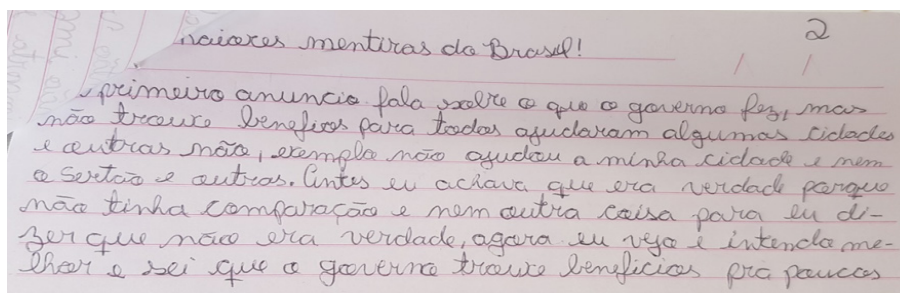 2
maiores mentiras do Brasil!
primeiro anuncio fala sobre o que o governo fez, mas
não trouxe benefiços para todos ajudaram algumas cidades
e outras não, exemplo não ajudou a minha cidade e nem
o Sertão e outras. Antes eu achava que era verdade porque
não tinha comparação e nem outra coisa para eu di-
zer que não era verdade, agora eu vejo e intendo me-
lhor e sei que o governo trouxe beneficios pra poucos